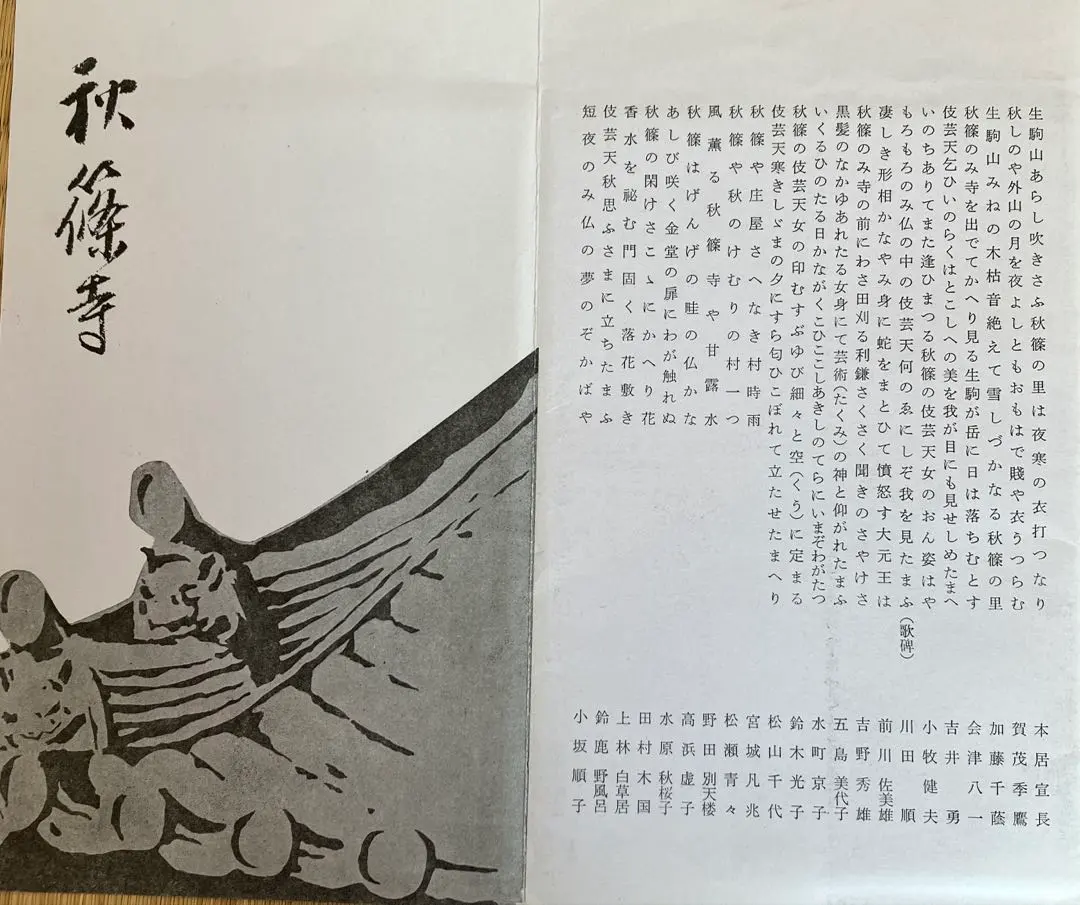 生駒山あらし吹きさふ秋篠の里は夜寒の衣打つなり 本居宣長
秋しのや外山の月を夜よしともおもはで賤や衣うつらむ 賀茂季鷹
生駒山みねの木枯音絶えて雪しづかなる秋篠の里 加藤千蔭
秋篠のみ寺を出でてかへり見る生駒が岳に日は落ちむとす 会津八一
伎芸天乞ひいのらくはとこしへの美を我が目にも見せしめたまへ 吉井勇
いのちありてまた逢ひまつる秋篠の伎芸天女のおん姿はや 小牧健夫
もろもろのみ仏の中の伎芸天何のゑにしぞ我を見たまふ(歌碑) 川田順
凄しき形相かなやみ身に蛇をまとひて憤怒す大元王は 前川佐美雄
秋篠のみ寺の前にわさ田刈る利鎌さくさく聞きのさやけさ 吉野秀雄
黒髪のなかゆあれたる女身にて芸術(たくみ)の神と仰がれたまふ 五島美代子
いくるひのたる日かながくこひここしあきしのてらにいまぞわがたつ 水町京子
秋篠の伎芸天女の印むすぶゆび細々と空(くう)に定まる 鈴木光子
伎芸天寒きしゞまの夕にすら匂ひこぼれて立たせたまへり 松山千代
秋篠や庄屋さへなき村時雨 宮城凡兆
秋篠や秋のけむりの村一つ 松瀬青々
風薫る秋篠寺や甘露水 野田別天楼
秋篠はげんげの畦の仏かな 高浜虚子
あしび咲く金堂の扉にわが触れぬ 水原秋桜子
秋篠の閑けさこゝにかへり花 田村木国
香水を祕む門固く落花敷き 上林白草居
伎芸天秋思ふさまに立ちたまふ 鈴鹿野風呂
短夜のみ仏の夢のぞかばや 小坂順子
秋篠寺